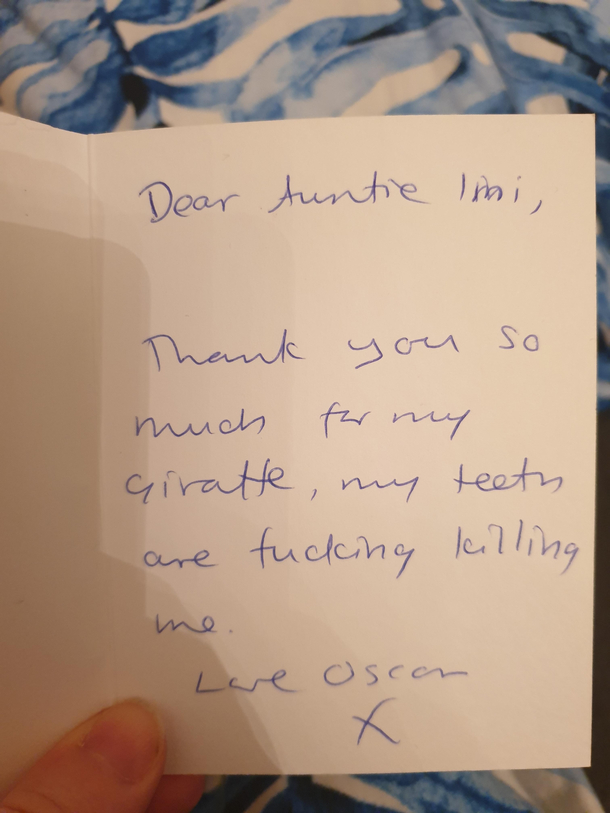 Dear Auntie Imi,
Thank you so
much for my
giraffe, my teeth
are fucking killing
me.
Love Oscar
X